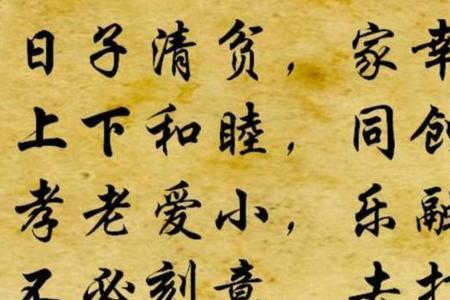 日子清贫，家幸
上下和睦，同创
孝老爱小，乐融
不必刻意，去打